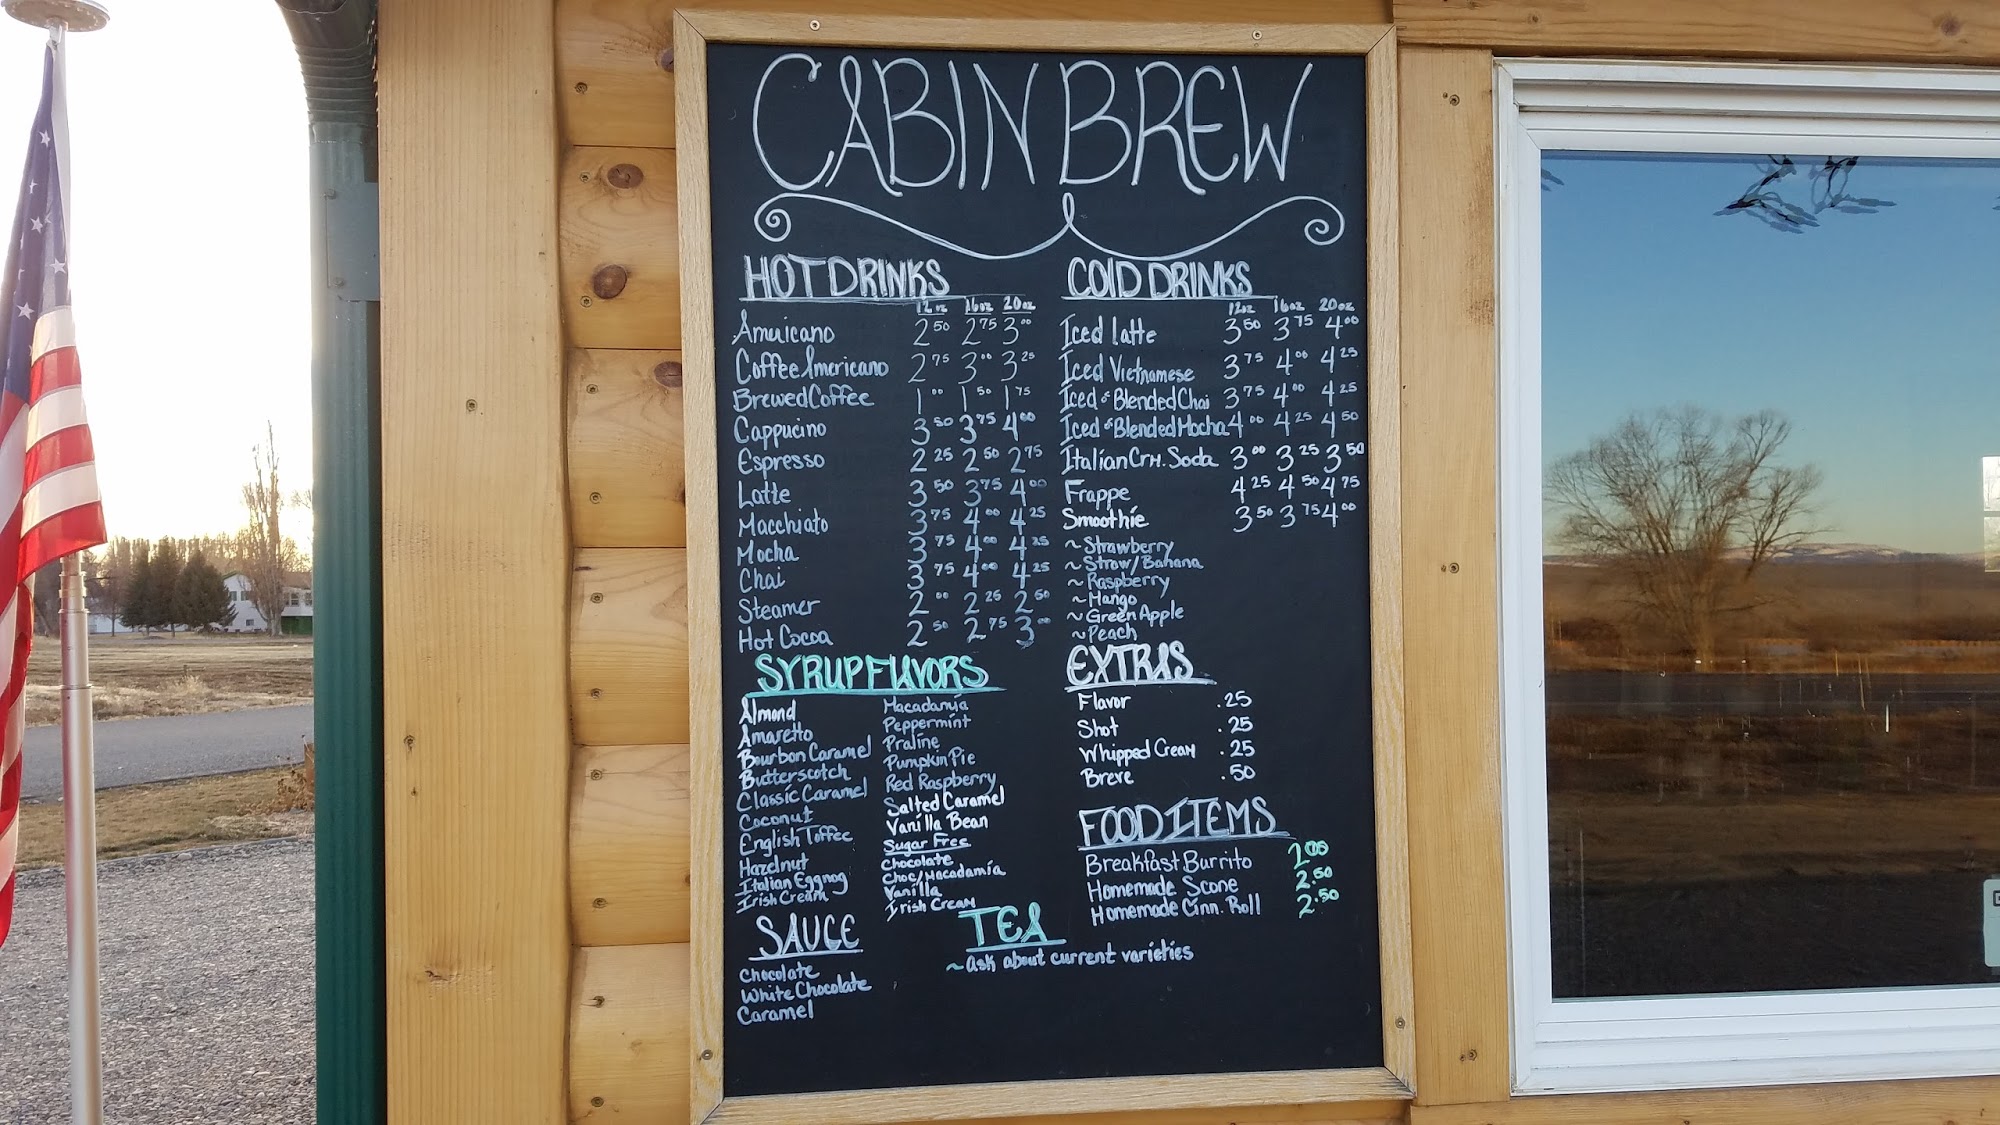 CABIN BREW
HOT DRINKS
12oz 16oz 20oz
Americano 2.50 2.75 3.00
Coffee Americano 2.75 3.00 3.25
Brewed Coffee 1.00 1.50 1.75
Cappucino 3.50 3.75 4.00
Espresso 2.25 2.50 2.75
Latte 3.50 3.75 4.00
Macchiato 3.75 4.00 4.25
Mocha 3.75 4.00 4.25
Chai 3.75 4.00 4.25
Steamer 2.00 2.25 2.50
Hot Cocoa 2.50 2.75 3.00
SYRUP FLAVORS
Almond
Amaretto
Bourbon Caramel
Butterscotch
Classic Caramel
Coconut
English Toffee
Hazelnut
Italian Eggnog
Irish Cream
Macadamia
Peppermint
Praline
Pumpkin Pie
Red Raspberry
Salted Caramel
Vanilla Bean
Sugar Free
Chocolate
Choc/Macadamia
Vanilla
Irish Cream
SAUCE
Chocolate
White Chocolate
Caramel
COLD DRINKS
12oz 16oz 20oz
Iced Latte 3.50 3.75 4.00
Iced Vietnamese 3.75 4.00 4.25
Iced or Blended Chai 3.75 4.00 4.25
Iced or Blended Mocha 4.00 4.25 4.50
Italian Crm. Soda 3.00 3.25 3.50
Frappe 4.25 4.50 4.75
Smoothie 3.50 3.75 4.00
~Strawberry
~Straw/Banana
~Raspberry
~Mango
~Green Apple
~Peach
EXTRAS
Flavor .25
Shot .25
Whipped Cream .25
Breve .50
FOOD ITEMS
Breakfast Burrito 2.00
Homemade Scone 2.50
Homemade Cinn. Roll 2.50
TEA
~Ask about current varieties